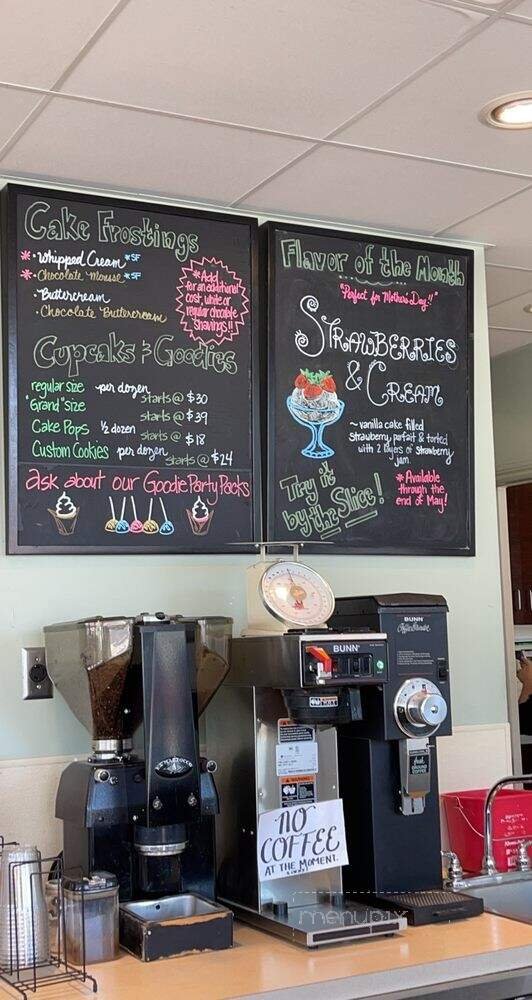 Cake Frostings
* · Whipped Cream *SF
* · Chocolate Mousse *SF
· Buttercream
· Chocolate Buttercream
*Add
for an additional
cost, white or
regular chocolate
shavings!!
Cupcaks & Goodies
regular size - per dozen
starts @ $30
"Grand" size
starts @ $39
Cake Pops ½ dozen
starts @ $18
Custom Cookies per dozen
starts @ $24
ask about our Goodie Party Packs
Flavor of the Month
"Perfect for Mother's Day!!"
STRAWBERRIES
& CREAM
~vanilla cake filled
strawberry parfait & torted
with 2 layers of strawberry
jam.
Try it
by the Slice!
* Available
through the
end of May!
BUNN
BUNN
WARNING
fresh
GROUND
COFFEE
NO
COFFEE
AT THE MOMENT.
menupix